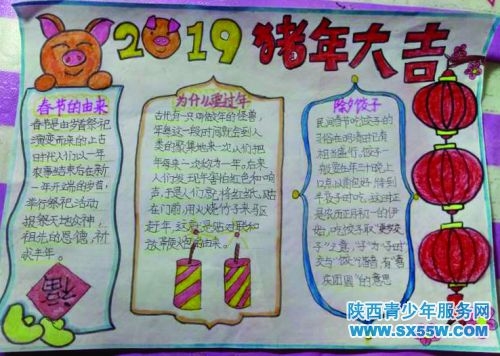 2019 猪年大吉
春节的由来
春节是由岁首祭祀
演变而来的上古
时代人们以一年
农事结束后在新
一年开端的岁首,
举行祭祀活动
报祭天地众神,
祖先的恩德,祈
求丰年。
福
为什么要过年
古代有一只叫做年的怪兽,
年年这一段时间就会到人
类的聚集地来一次人们把
年每来一次始为一年。后来
人们发现年害怕红色和响
声,于是人们就将红纸贴
在门前,用火烧竹子来驱
赶年,这就是贴对联和
放鞭炮的由来。
除夕饺子
民间春节吃饺子的
习俗在明清时已有
相当盛行,饺子一
般要在年三十晚上
以前包好,待到
半夜子时吃,这时正
是农历正月初一的伊
始,吃饺子取"更岁交
子"之意,"子"为"子时"
交与"饺"谐音,有"喜
庆团圆"的意思
陕西青少年服务网
www.sx55w.com